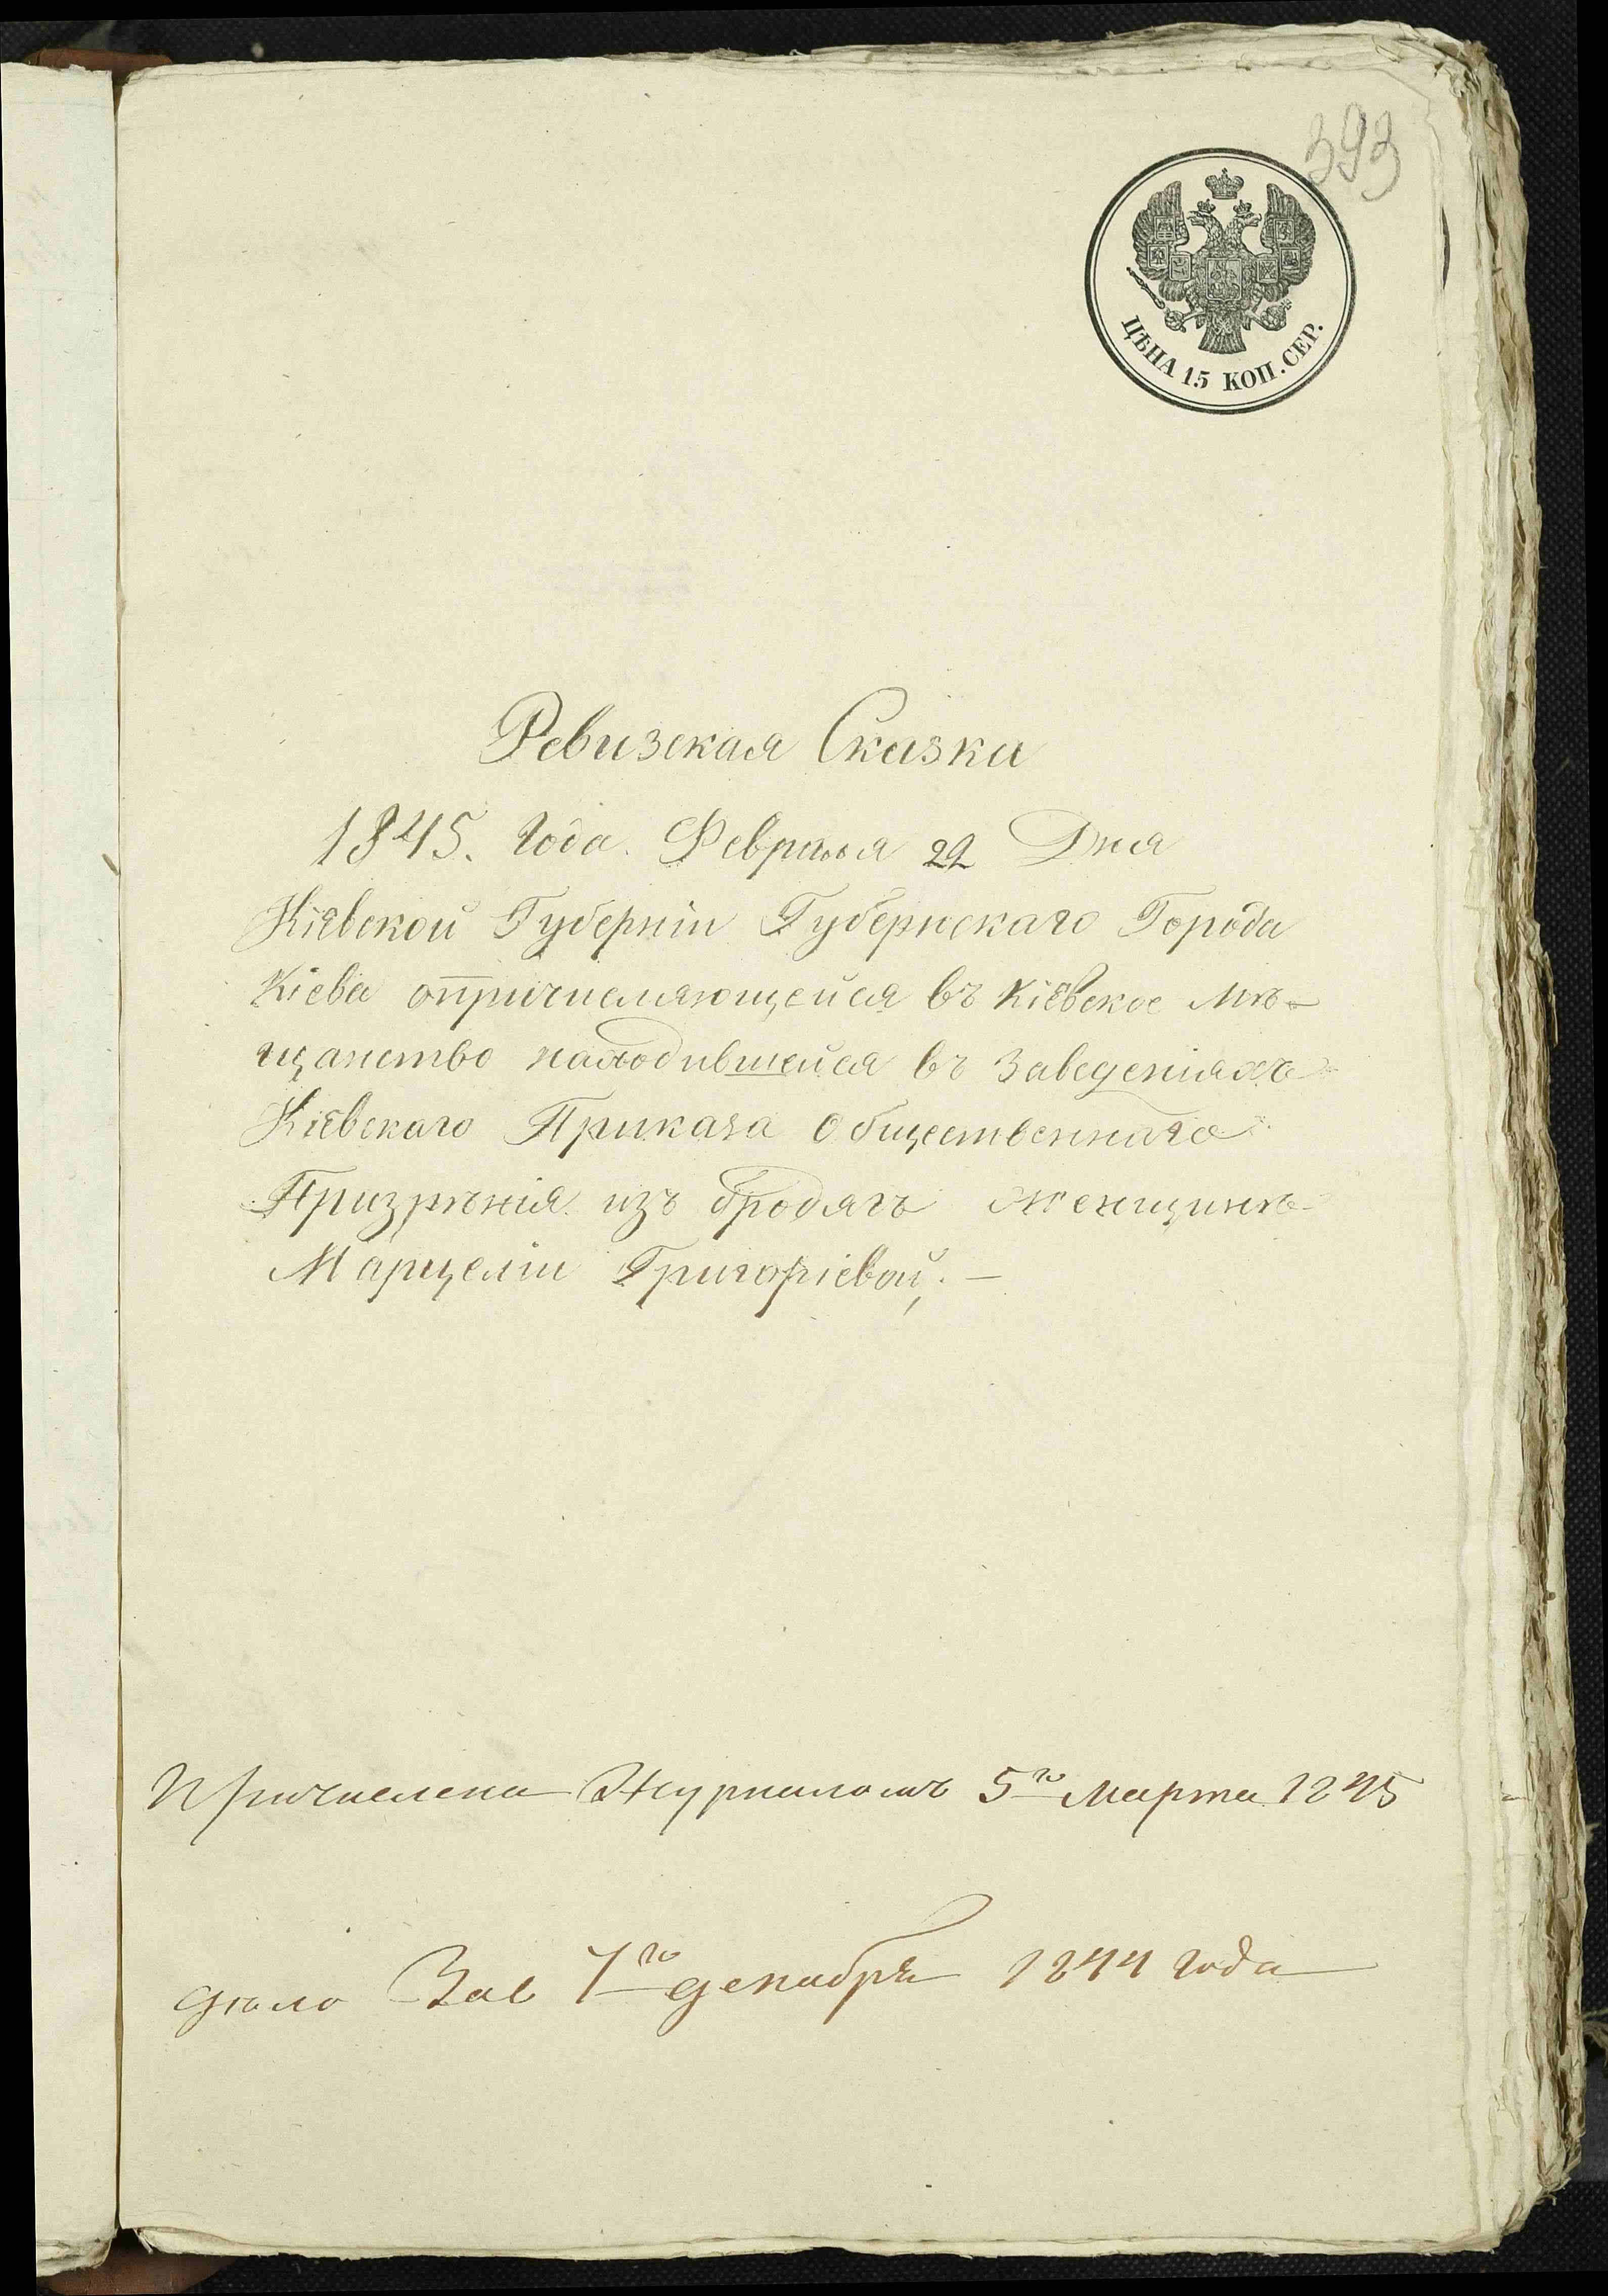 393
ЦѢНА 15 КОП. СЕР.
Ревизская Сказка
1845. Года. Февраля 22 Дня
Кіевской Губерніи Губернскаго Города
Кіева опричисляющейся въ Кіевское Мѣ-
щанство находившейся въ Заведеніяхъ
Кіевскаго Приказа Общественнаго
Призрѣнія изъ бродягъ женщинѣ
Марцеліи Григоріевой. —
Причислена Журналомъ 5го Марта 1845
дѣло Зав 7го декабря 1844 года